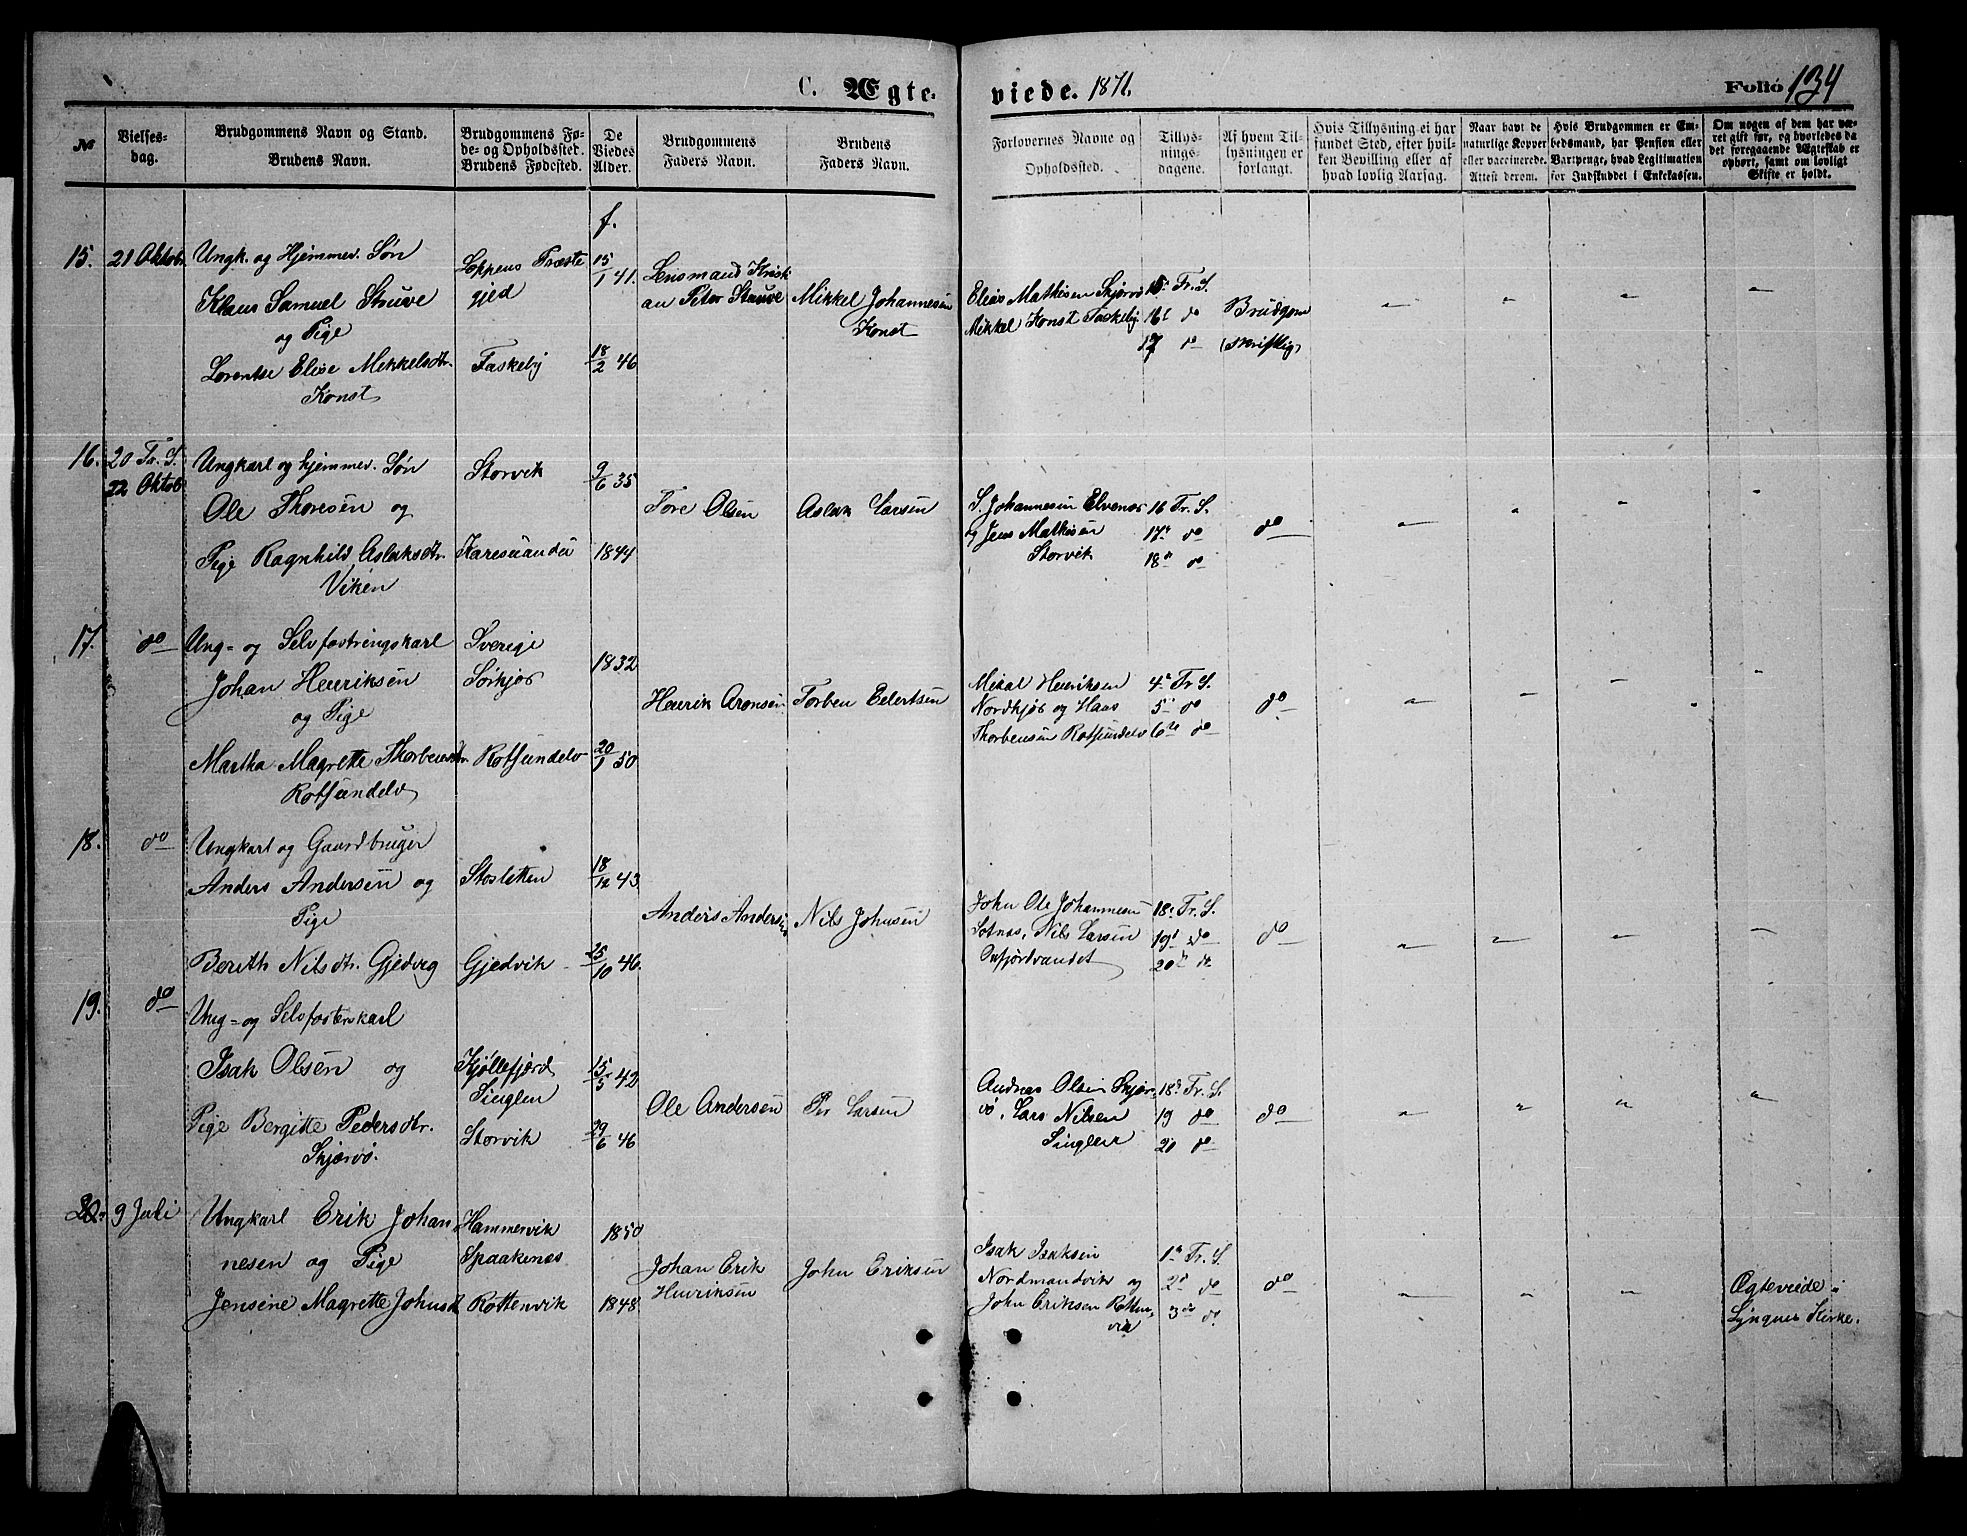 C. Ægteviede. 1871. Folio 134
№ Vielsesdag. Brudgommens Navn og Stand. Brudens Navn. Brudgommens Føde- og Opholdssted. Brudens Fødested. De Viedes Alder. Brudgommens Faders Navn. Brudens Faders Navn. Forlovernes Navne og Opholdssted. Tillysningsdagene. Af hvem Tillysningen er forlangt. Hvis Tillysning ei har fundet Sted, efter hvilken Bevilling eller af hvad lovlig Aarsag. Naar havt de naturlige Kopper eller vaccinerede. Attest derom. Hvis Brudgommen er Embedsmand, har Pension eller Vartpenge, hvad Legitimation for Indskuddet i Enkekassen. Om nogen af dem har været gift før, og hvorledes da det foregaaende Ægteskab er ophørt, samt om lovligt Skifte er holdt.
f.
15. 21 Oktob. Ungk. og Hjemmev. Søn Loppens Præste 15/1 41. Lensmand Kristi
Klaus Samuel Struve gjed an Peter Stuwe Mikkel Johannesen Elias Mathisen Skjervø 15 Fr. S.
og Pige Konst Mikkel Konst Taskeby 16 do Brudgom
17 do (skriftlig)
Lorentse Elise Mikkelsdtr. Taskeby 18/2 46
Konst
16. 20 Tr. S. Ungkarl og hjemmev. Søn Storvik 9/6 35
22 Oktob
Ole Thoresen og Tore Olsen Aslak Larsen S. Johannesen Elvenes 16 Tr. S.
og Jens Mathisen 17 do do
Pige Ragnhild Aslaksdtr. Karesuando 1844 Storvik 18 do
Viken
17. do Ung- og Selvfostringskarl Sverige 1832
Johan Henriksen Sørkjos Mikal Henriksen 4 Tr. S.
og Pige Henrik Aronsen Torben Eilertsen Nordkjos og Hans 5 do do
Thorbensen Rotsundelv 6te do
Martha Magrette Thorbensdtr. Rotsundelv 20/1 50
Rotsundelv
18. do Ungkarl og Gaardbruger
Anders Andersen og Storsletten 18/12 43.
Pige Anders Andersen Nils Johnsen John Ole Johannesen 18 Tr. S.
Sotnes, Nils Larsen 19 do do
Berith Nilsdtr. Gjedvig Gjedvik 25/10 46. Oxfjordvandet 20 do
19. do Ung- og Selvfosterskarl
Isak Olsen og Kjøllefjord 15/5 42
Singlen Ole Andersen Per Larsen Andreas Olsen Skjer- 18 Tr. S.
vø, Lars Nilsen 19 do do
Pige Bergitte Pedersdtr. Storvik 29/6 46 Singlen 20 do
Skjærvø.
20. 9 Juli Ungkarl Erik Johan Hammervik 1850
nesen og Pige Spaakenes Johan Erik John Eriksen Isak Isaksen 1 Tr. S.
Henriksen Nordmandvik og 2 do do Ægteviede i
Jensine Magrette Johnsdt Rottenvik 1848 John Eriksen Rotten- 3 do Lyngens Kirke.
vik